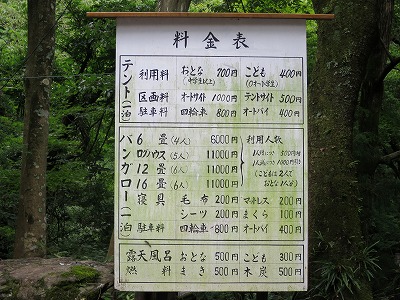 料金表
テント一泊
利用料 おとな 700円 こども 400円
(中学生以上)
区画料 オートサイト 1000円 テントサイト 500円
駐車料 四輪車 800円 オートバイ 400円
バンガロー一泊
6畳 (4人) 6000円 利用人数
ログハウス (5人) 11000円
12畳 (6人) 11000円
16畳 (6人) 11000円
(こどもは2人で
おとな1人分)
寝具 毛布 200円 マットレス 200円
シーツ 200円 まくら 100円
駐車料 四輪車 800円 オートバイ 400円
露天風呂 おとな 500円 こども 300円
燃料 まき 500円 木炭 500円